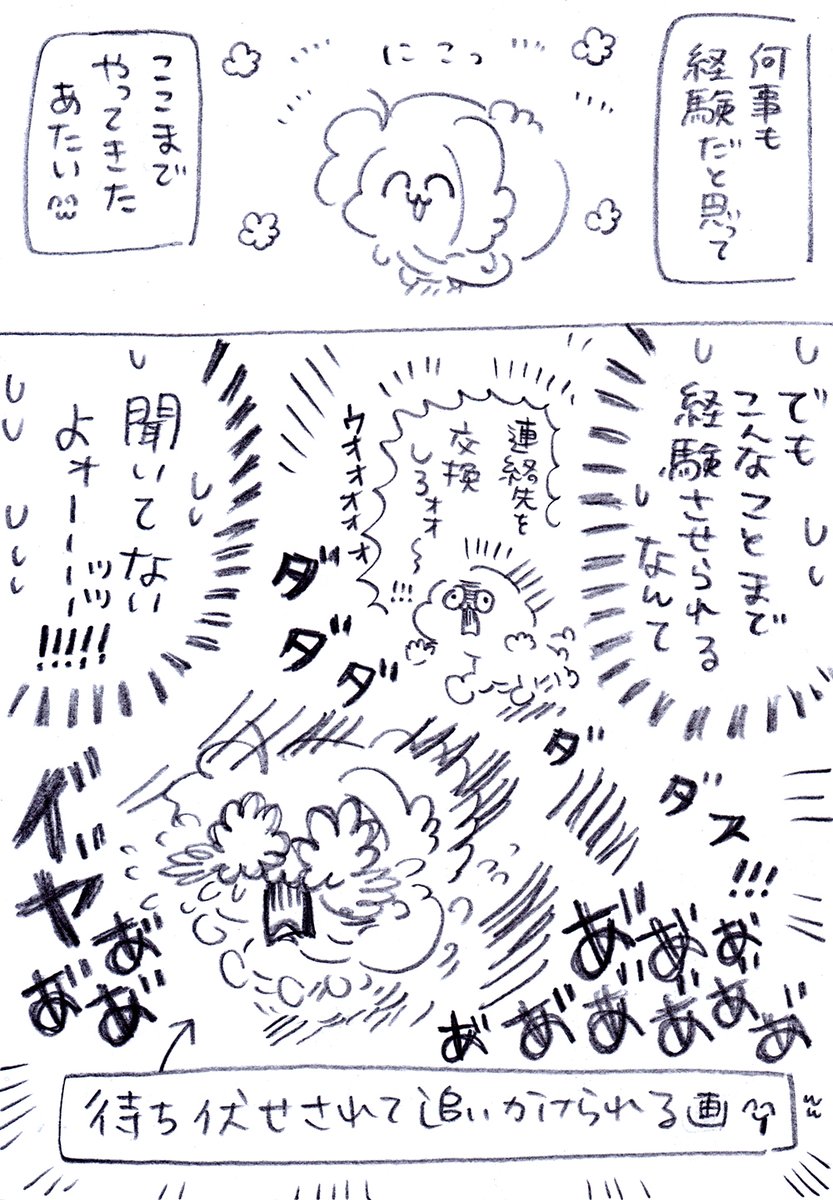 何事も
経験だと思って
にこっ
ここまで
やってきた
あたい
でも
こんなことまで
経験させられる
なんて
連絡先を
交換
しろォォ〜
!!!
ウオォォォォ
聞いてない
よォーーーーッッ
!!!!!
ダ
ダ
ダ
ダ
ダス
!!!
イ゛ヤ゛
あ゛あ゛
あ゛あ゛
あ゛あ゛あ゛
あ゛あ゛あ゛あ゛あ゛あ゛
待ち伏せされて追いかけられる画